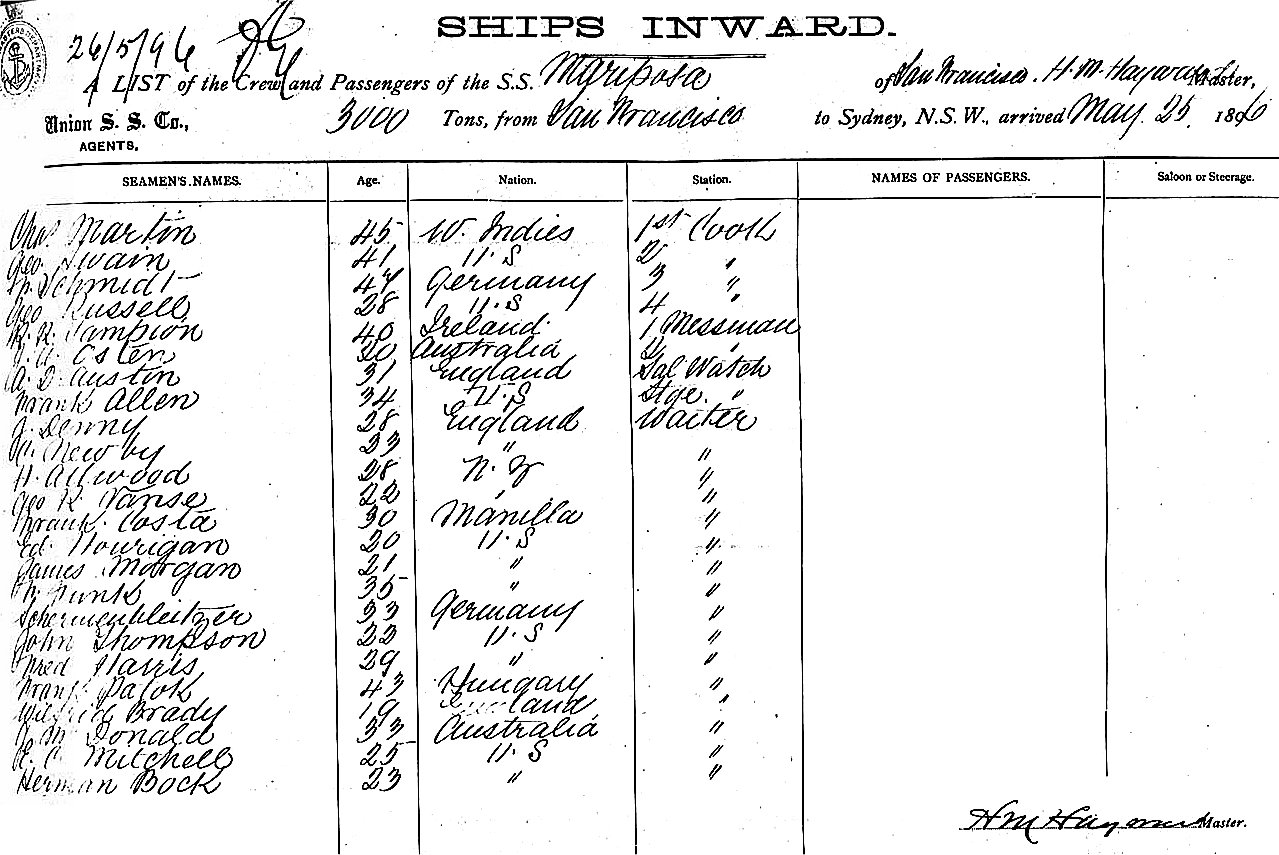 SHIPS INWARD.
26/5/96
A LIST of the Crew and Passengers of the S.S. Mariposa of San Francisco. H. M. Hayward Master,
Union S. S. Co., 3000 Tons, from San Francisco to Sydney, N.S.W., arrived May. 25. 1896
AGENTS.
SEAMEN'S NAMES. Age. Nation. Station. NAMES OF PASSENGERS. Saloon or Steerage.
Chas Martin 45 W. Indies 1st Cook
Geo. Swain 41 U.S 2 "
Schmidt 47 Germany 3 "
Geo Russell 28 U.S 4 "
Campion 40 Ireland 1 Messman
Osten 20 Australia 2 "
A. D. Austin 31 England Sal Watch
Frank Allen 34 U.S Stge. "
J. Denny 28 England Waiter
Newby 23 " "
H. Allwood 28 N. Z "
Geo R. Vanse 22 " "
Frank Costa 30 Manilla "
Ed. Hourigan 20 U.S "
James Morgan 21 " "
Funk 35 " "
Schermenbleitzer 33 Germany "
John Thompson 22 U.S "
Fred Harris 29 " "
Frank Patok 43 Hungary "
Wilfrid Brady 19 England "
McDonald 33 Australia "
C. Mitchell 25 U.S "
Herman Bock 23 " "
H M Hayward Master.